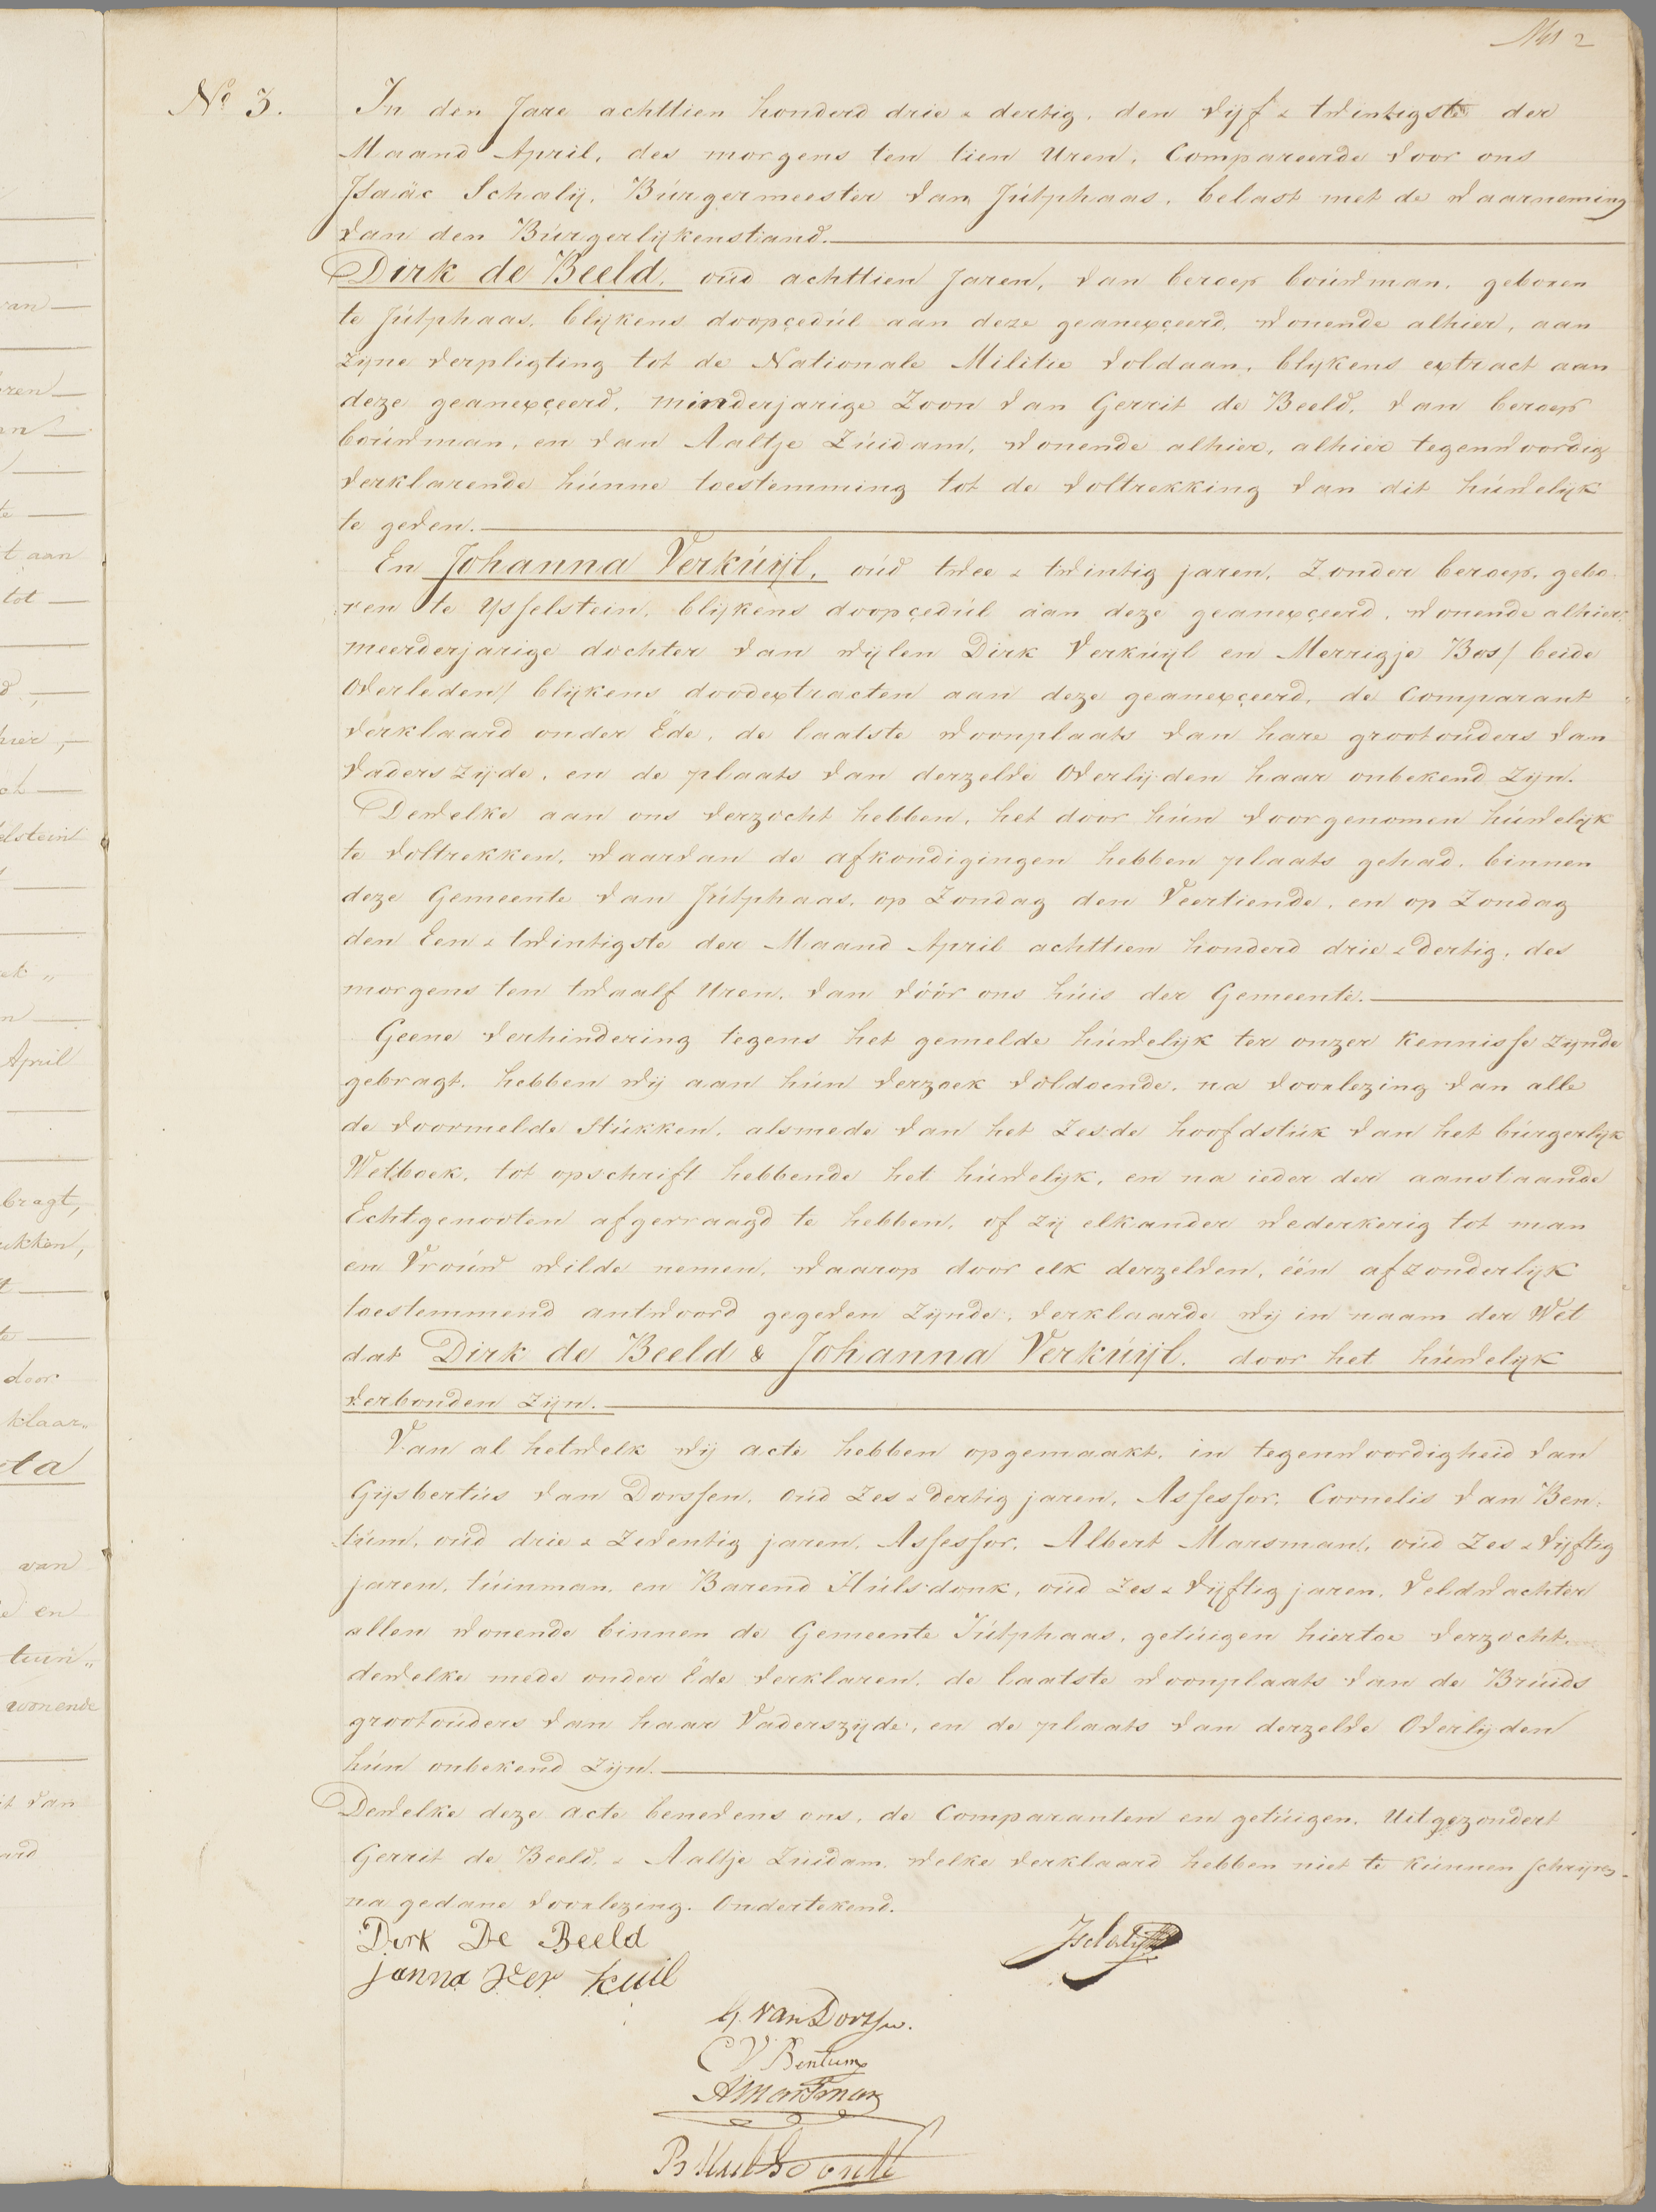 No 3.
In den Jare achttien honderd drie & dertig, den vijf & twintigste der
Maand April, des morgens ten tien Uren, Compareerde voor ons
Isaäc Schalij, Burgermeester van Jutphaas, belast met de waarneming
van den Burgerlijkenstand.
Dirk de Beeld, oud achttien Jaren, van beroep bouwman, geboren
te Jutphaas, blijkens doopçedul aan deze geanexçeerd, wonende alhier, aan
zijne verpligting tot de Nationale Militie voldaan, blykens extract aan
deze geanexçeerd, minderjarige Zoon van Gerrit de Beeld, van beroep
bouwman, en van Aaltje Zuidam, wonende alhier, alhier tegenwoordig
verklarende hunne toestemming tot de voltrekking van dit huwelijk
te geven.
En Johanna Verkuijl, oud twee & twintig jaren, Zonder beroep, gebo
ren te Ysselstein, blijkens doopçedul aan deze geanexçeerd, wonende alhier,
meerderjarige dochter van wijlen Dirk Verkuijl en Merrigje Bos / beide
Overleden / blijkens doodextracten aan deze geanexçeerd, de Comparant
verklaard onder Ede, de laatste woonplaats van hare grootouders van
vaders zijde, en de plaats van derzelve Overlijden haar onbekend zijn.
Dewelke aan ons verzocht hebben, het door hun voorgenomen huwelijk
te voltrekken, waarvan de afkondigingen hebben plaats gehad, binnen
deze Gemeente van Jutphaas, op Zondag den Veertiende, en op Zondag
den Een & twintigste der Maand April achttien honderd drie & dertig, des
morgens ten twaalf Uren, van vóór ons huis der Gemeente.
Geene verhindering tegens het gemelde huwelijk ter onzer kennisse zijnde
gebragt, hebben wij aan hun verzoek voldoende, na voorlezing van alle
de voormelde Stukken, alsmede van het Zesde hoofdstuk van het burgerlijk
Wetboek, tot opschrift hebbende het huwelijk, en na ieder der aanstaande
Echtgenooten afgevraagd te hebben, of zij elkander wederkerig tot man
en Vrouw wilde nemen, waarop door elk derzelven, één afzonderlijk
toestemmend antwoord gegeven zijnde, verklaarde wij in naam der Wet
dat Dirk de Beeld & Johanna Verkuijl, door het huwelijk
verbonden zijn.
Van al hetwelk wij acte hebben opgemaakt, in tegenwoordigheid van
Gijsbertus van Dorssen, oud zes & dertig jaren, Assessor, Cornelis van Ben:
tum, oud drie & zeventig jaren, Assessor, Albert Marsman, oud zes & vijftig
jaren, tuinman, en Barend Hulsdonk, oud zes & vijftig jaren, veldwachter
allen wonende binnen de Gemeente Jutphaas, getuigen hiertoe verzocht,
dewelke mede onder Ede verklaren, de laatste woonplaats van de Bruids
grootouders van haar Vaderszijde, en de plaats van derzelve Overlijden
hun onbekend zijn.
Dewelke deze acte benevens ons, de Comparanten en getuigen, Uitgezondert
Gerrit de Beeld, & Aaltje Zuidam, welke verklaard hebben niet te kunnen schrijven
na gedane voorlezing. Ondertekend.
Dirk De Beeld
janna Ver kuil
JSchalij
G. van Dorssen.
C V Bentum
A Marsman
B Hulsdonk